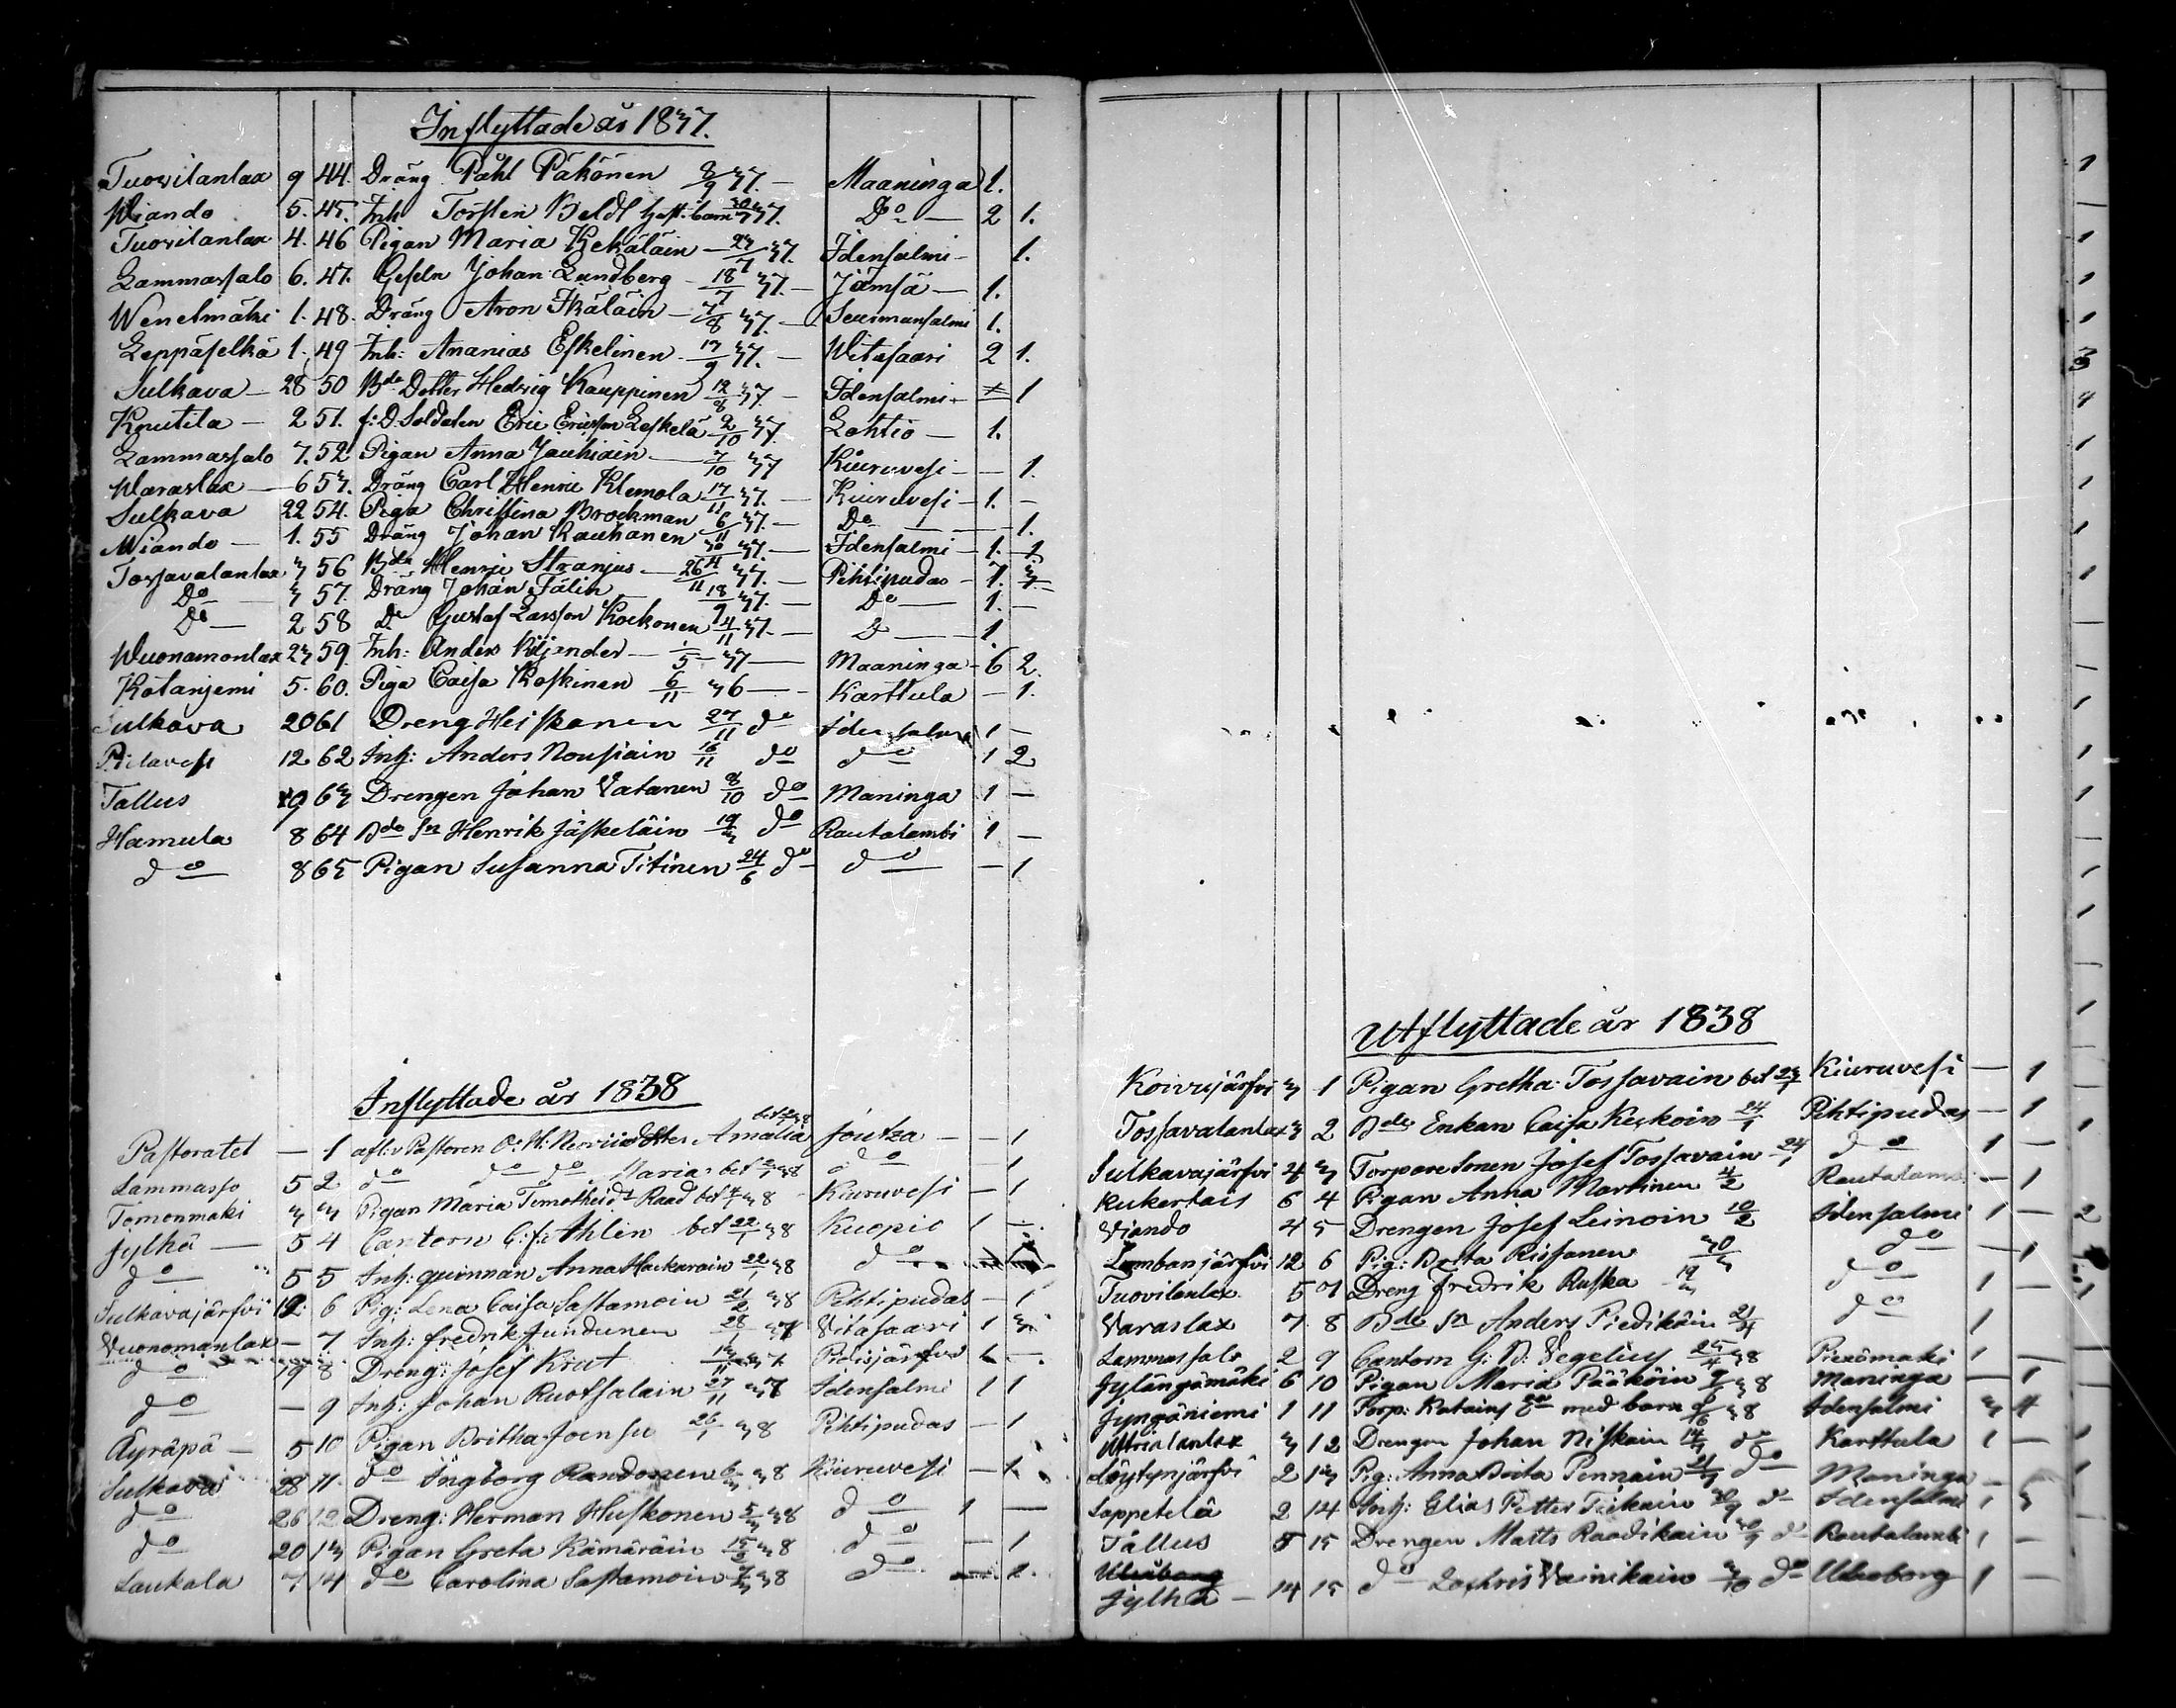 Inflyttade år 1837.
Tuovilanlax 9 44. Dräng Påhl Päkönen 8/9 37. — Maaninga 1.
Wiando 5. 45. Inh Torsten Beldt hust. barn 30/7 37. Do — 2 1.
Tuovilanlax 4. 46 Pigan Maria Kekäläin — 23/7 37. Idensalmi — 1.
Lammassalo 6. 47. Geseln Johan Lundberg — 18/7 37. — Jämsä — 1.
Wenelmäki 1. 48. Dräng Aron Ikäläin — 7/8 37. — Suomensalmi 1.
Leppäselkä 1. 49 Inh: Ananias Eskelinen 17/9 37. — Witasaari 2 1.
Sulkava — 28 50 Bde Dotter Hedvig Kauppinen 12/8 37 — Idensalmi — 1
Koutila — 2 51. f: D. Soldaten Eric Ericsson Leskelä 2/10 37. Lohtio — 1.
Lammassalo 7. 52 Pigan Anna Jauhiain — 7/10 37 Kiuruvesi — — 1.
Waraslax — 6 53. Dräng Carl Henric Klemola 17/11 37. — Kiuruvesi — 1. —
Sulkava 22 54. Piga Christina Brockman 6/11 37. — Do — 1.
Wiando — 1. 55 Dräng Johan Kauhanen 30/11 37. — Idensalmi — 1. 1
Tossavalanlax 3 56 Bde Henric Stranius — 26/11 37. — Pihtipudas — 1. 3
Do — 3 57. Dräng Johan Fälin 18/9 37. — Do — 1. —
Do — 2 58 Do Gustaf Larsson Kockonen 4/11 37. — D — 1
Wuonamonlax 23 59. Inh: Anders Kiljander — 1/5 37 — Maaninga — 6 2.
Kotanjemi 5. 60. Piga Caisa Koskinen 6/11 36 — Karttula — 1.
Sulkava 20 61 Dreng Heiskanen 27/11 do Idensalmi 1 —
Pielavesi 12 62 Inh: Anders Nousiain 16/11 do do 1 2
Tallus 19 63 Drengen Johan Vatanen 8/10 do Maninga 1 —
Hamula 8 64 Bde Sn Henrik Jäskeläin 19/3 do Rautalambi 1 —
do 8 65 Pigan Susanna Titinen 24/6 do do — 1
Inflyttade år 1838
Pastoratet — 1 afl: v Pastoren O: H: Dotter Amalia Joutza — — 1
Lammasso 5 2 do do do Maria bet 38 do — 1
Tomonmäki 3 3 Pigan Maria Timotheid Raad bet 38 Kiuruvesi — 1
Jylhä — 5 4 Cantorn C: J: Ahlin bet 22/1 38 Kuopio 1 —
do 5 5 Inh: quinnan Anna Hackarain 22/1 38 do
Sulkavajärfvi 12. 6 Pig: Lena Caisa Sastamoin 21/2 38 Pihtipudas — 1
Vuonomanlax — 7 Inh: Fredrik Jundunen 28/1 37 Vitasaari 1 3
do 19 8 Dreng: Josef Krut 13/11 37 Pidisjärfvi 1 —
do — 9 Inh: Johan Ruotsalain 27/11 37 Idensalmi 1 1
Äyräpä — 5 10 Pigan Britha Joensu 26/1 38 Pihtipudas — 1
Sulkava 28 11. do Ingborg Randonen 6/3 38 Kiuruvesi — 1
do 26 12 Dreng: Herman Huskonen 5/3 38 do 1 —
do 20 13 Pigan Greta Kämäräin 15/2 38 do — 1
Laukala 7 14 do Carolina Sastamoin 7/3 38 do — 1.
Utflyttade år 1838
Koivujärfvi 3 1 Pigan Gretha Tossavain bet 23/1 Kiuruvesi — 1
Tossavalanlax 3 2 Bde Enkan Caisa Keckoin 24/1 Pihtipudas — 1
Sulkavajärfvi 4 3 Torpare Sonen Josef Tossavain 24/1 do 1 —
Kukertais 6 4 Pigan Anna Martinen 4/2 Rautalamb — 1
Viando 4 5 Drengen Josef Leinoin 10/2 Idensalmi 1 —
Lambanjärfvi 12 6 Pig: Brita Rissanen 30/3 do — 1
Tuovilanlax 5 7 Dreng Fredrik Ruska 19/3 do 1 —
Varaslax 7 8 Bde Sn Anders Piedikäin 21/4 do 1
Lammassalo 2 9 Cantorn G: B: Vegelius 25/4 38 Piexämäki 1 —
Jylängämäki 6 10 Pigan Maria Pääköin 9/6 38 Maninga — 1
Jyngäniemi 1 11 Torp: Katains Ea med barn 38 Idensalmi 3 4
3 12 Drengen Johan Niskain 14/7 do Karttula 1 —
Löytynjärfvi 2 13 Pig: Anna Brita Pennain 21/7 do Maninga — 1
Lappetelä 2 14 Inh: Elias Petter Tickain 30/9 do Idensalmi 1 3
Tallus 5 15 Drengen Matts Raadikain 30/9 do Rautalambi 1 —
Uleåborg
Jylhä — 14 15 do Zachris Vainikain 3/10 do Uleaborg 1 —